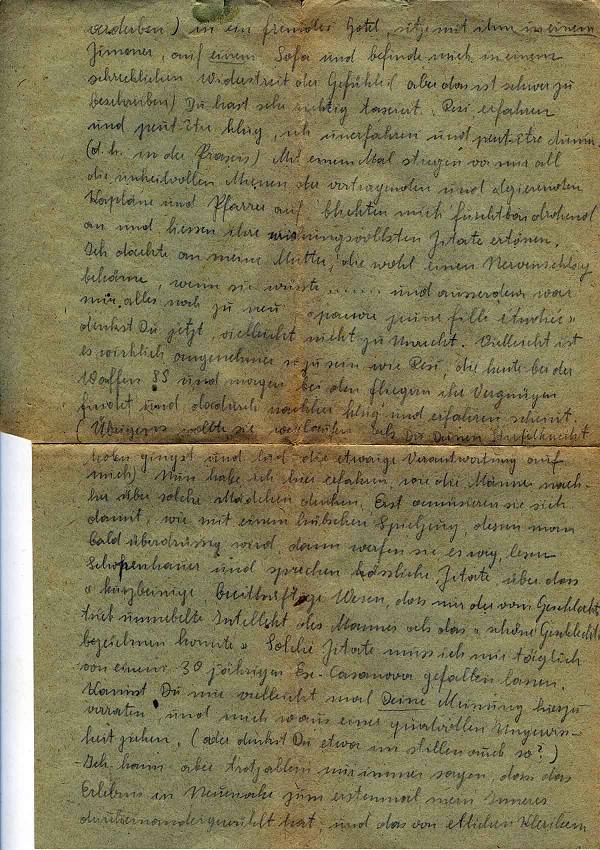 verderben) in ein fremdes Hotel, sitze mit ihm in einem
Zimmer, auf einem Sofa und befinde mich in einem
schrecklichen Widerstreit der Gefühle (aber das ist schwer zu
beschreiben) Du hast sehr richtig taxiert. Resi erfahren
und peut-être klug, ich unerfahren und peut-être dumm.
(d.h. in der Praxis) Mit einem Mal stiegen vor mir all
die unheilvollen Mienen der vortragenden und
Kapläne und Pfarrer auf blickten mich furchtbar drohend
an und liessen ihre Zitate ertönen.
Ich dachte an meine Mutter, die wohl einen Nervenschlag
bekäme, wenn sie wüsste ....... und ausserdem war
mir alles noch zu neu "pauvre jeune fille
denkst Du jetzt, vielleicht nicht zu Unrecht. Vielleicht ist
es wirklich angenehmer so zu sein wie Resi, die heute bei der
Waffen SS und morgen bei den Fliegern ihr Vergnügen
findet und dadurch nachher klug und erfahren scheint.
(Übrigens wollte sie weglaufen als Du Deinen Stiefelknecht
holen gingst und lud die etwaige Verantwortung auf
mich) Nun habe ich hier erfahren, wie die Männer nach-
her über solche Mädchen denken. Erst amüsieren sie sich
damit, wie mit einem hübschen Spielzeug, dessen man
bald überdrüssig wird, dann werfen sie es weg, lesen
Schopenhauer und sprechen hässliche Zitate über das
"kurzbeinige breithüftige Wesen, dass nur der vom Geschlechts
trieb umnebelte Intellekt des Mannes als das "schöne Geschlecht"
bezeichnen konnte" Solche Zitate muss ich mir täglich
von einem 38 jährigen Ex-Casanova gefallen lassen.
Kannst Du mir vielleicht mal Deine Meinung hierzu
verraten, und mich so aus einer qualvollen Ungewiss-
heit ziehen, (oder denkst Du etwa im stillen auch so?)
Ich kann aber trotz allem nur immer sagen, dass das
Erlebnis in zum erstenmal mein Inneres
durcheinandergewühlt hat, und das von etlichen Klerikern